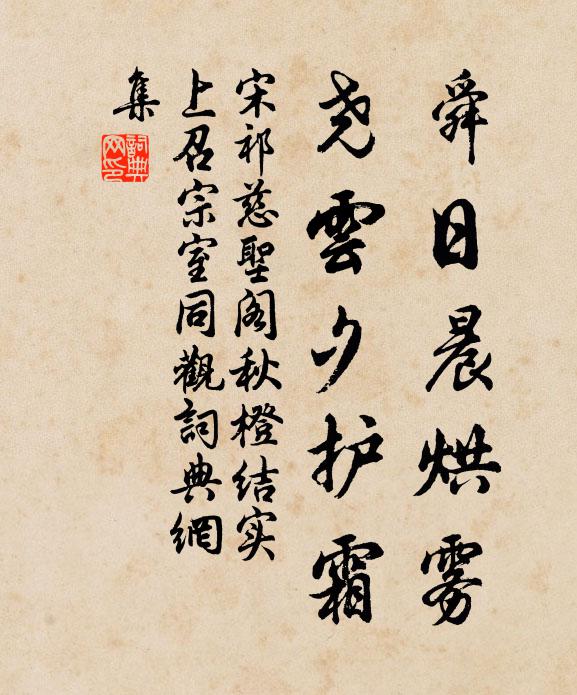 舜日晨烘雾
尧雲夕护霜
宋祁慈聖阁秋橙结实
上召宗室同觀詞典網
集
詞典网印